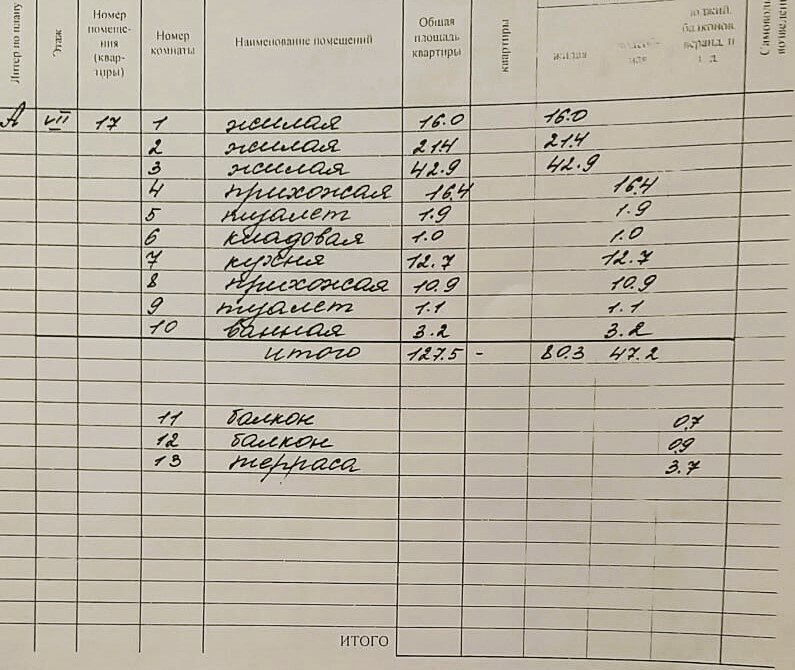 Литер по плану Этаж Номер помеще- ния (квар- тиры) Номер комнаты Наименование помещений Общая площадь квартиры квартиры жилая лоджий, балконов, веранд и т.д. Самоволь
А VII 17 1 жилая 16.0 16.0
2 жилая 21.4 21.4
3 жилая 42.9 42.9
4 прихожая 16.4 16.4
5 туалет 1.9 1.9
6 кладовая 1.0 1.0
7 кухня 12.7 12.7
8 прихожая 10.9 10.9
9 туалет 1.1 1.1
10 ванная 3.2 3.2
итого 127.5 - 80.3 47.2
11 балкон 0.7
12 балкон 0.9
13 терраса 3.7
ИТОГО